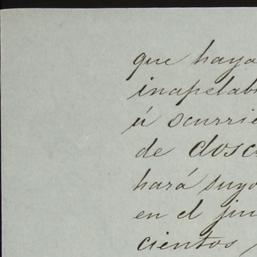 que haya
inapelab
ú ocurrie
de dosc
hará suyo
en el jui
cientos